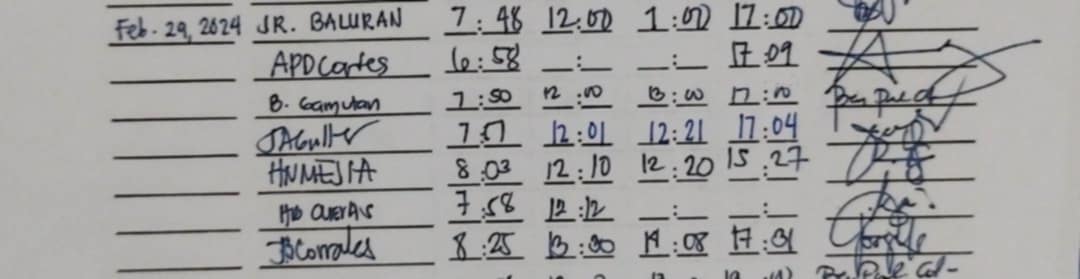 Feb. 29, 2024 JR. BALURAN 7:48 12:00 1:00 17:00
APDCortes 6:58 _:_ _:_ 17:09
B. Gamutan 7:50 12:00 13:00 17:00
7:57 12:01 12:21 17:04
HNMEJIA 8:03 12:10 12:20 15:27
7:58 12:12 _:_ _:_
JBCorrales 8:25 13:30 14:08 17:31